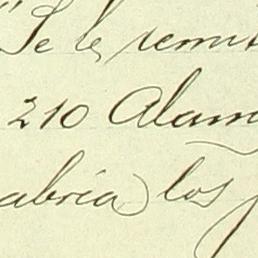 "Se le remit
210 Alam
abria) los